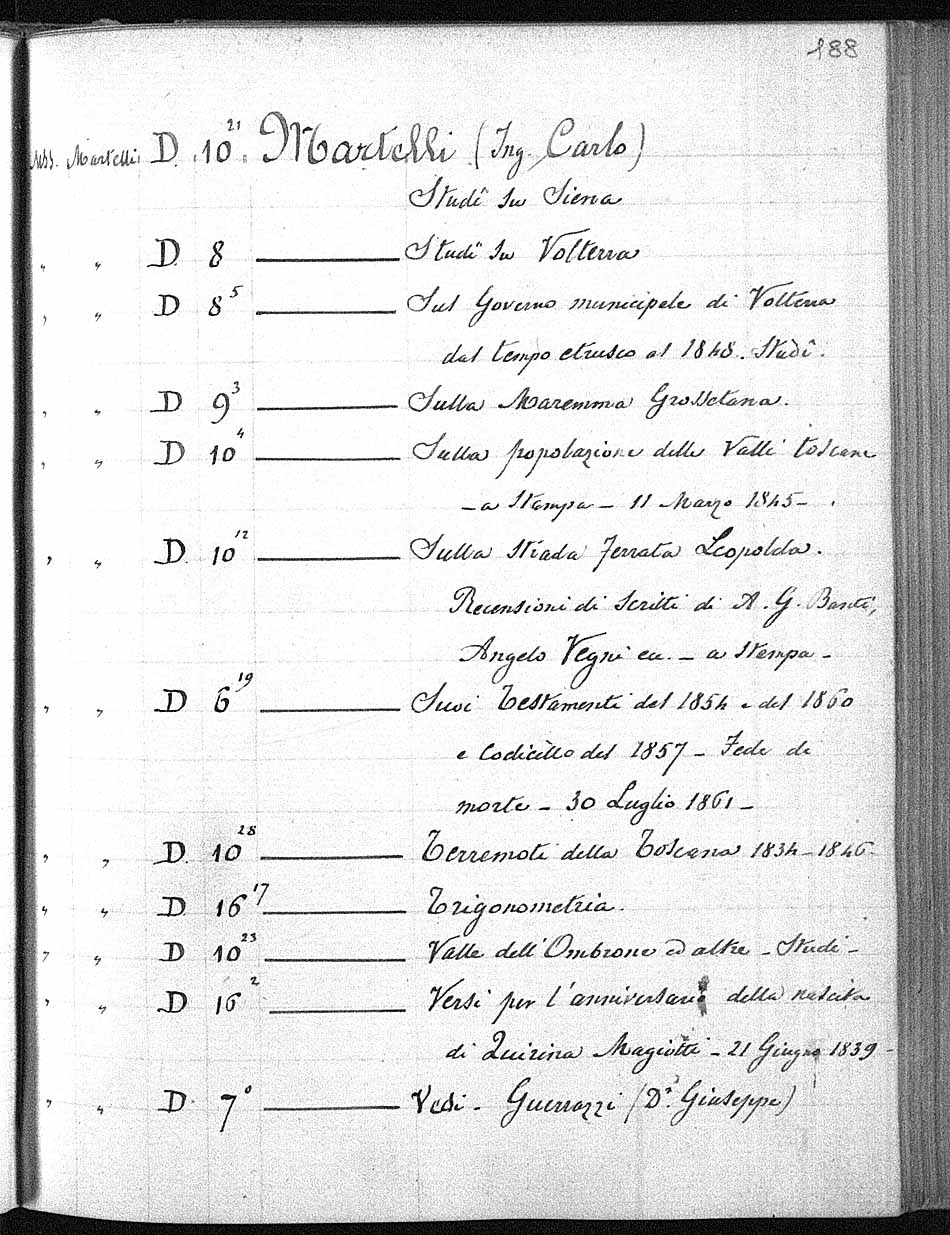 188
Mss. Martelli D. 10²¹. Martelli (Ing. Carlo)
Studî su Siena
" " D. 8 ——— Studî su Volterra
" " D 8⁵ ——— Sul Governo municipale di Volterra
dal tempo etrusco al 1848. Studî.
" " D 9³ ——— Sulla Maremma Grossetana.
" " D 10⁴ ——— Sulla popolazione delle Valli toscane
– a stampa – 11 Marzo 1845 – .
" " D. 10¹² ——— Sulla strada ferrata Leopolda.
Recensioni di scritti di A. G. Banti,
Angelo Vegni ecc. – a stampa –
" " D 6¹⁹ ——— Suoi Testamenti del 1854 e del 1860
e Codicillo del 1857 – Fede di
morte – 30 Luglio 1861 –
" " D. 10²⁸ ——— Terremoti della Toscana 1834–1846.
" " D. 16¹⁷ ——— Trigonometria.
" " D 10²³ ——— Valle dell'Ombrone ed altre – Studi –
" " D 16² ——— Versi per l'anniversario della nascita
di Quirina Magiotti – 21 Giugno 1839 –
" " D. 7⁰ ——— Vedi – Guerrazzi (Dʳ. Giuseppe)